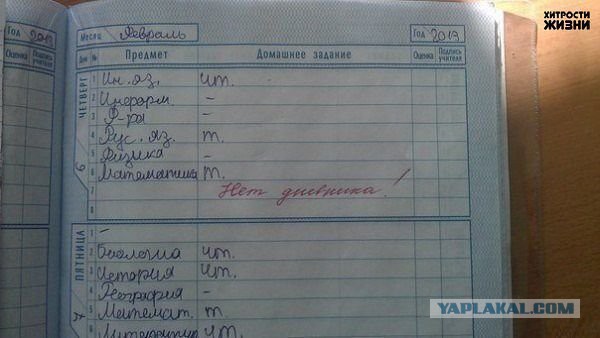 ХИТРОСТИ
ЖИЗНИ
Год 2013
Оценка Подпись учителя
Месяц Февраль Год 2013
Дни № Предмет Домашнее задание Оценка Подпись учителя
ЧЕТВЕРГ
6
1 Ин. яз. чт.
2 Информ –
3 Ф-ра –
4 Рус. яз. т.
5 Физика –
6 Математика т.
7 Нет дневника!
8
ПЯТНИЦА
7
1 –
2 Биология чт.
3 История чт.
4 География –
5 Математ. т.
6 Литература чт.
YAPLAKAL.COM